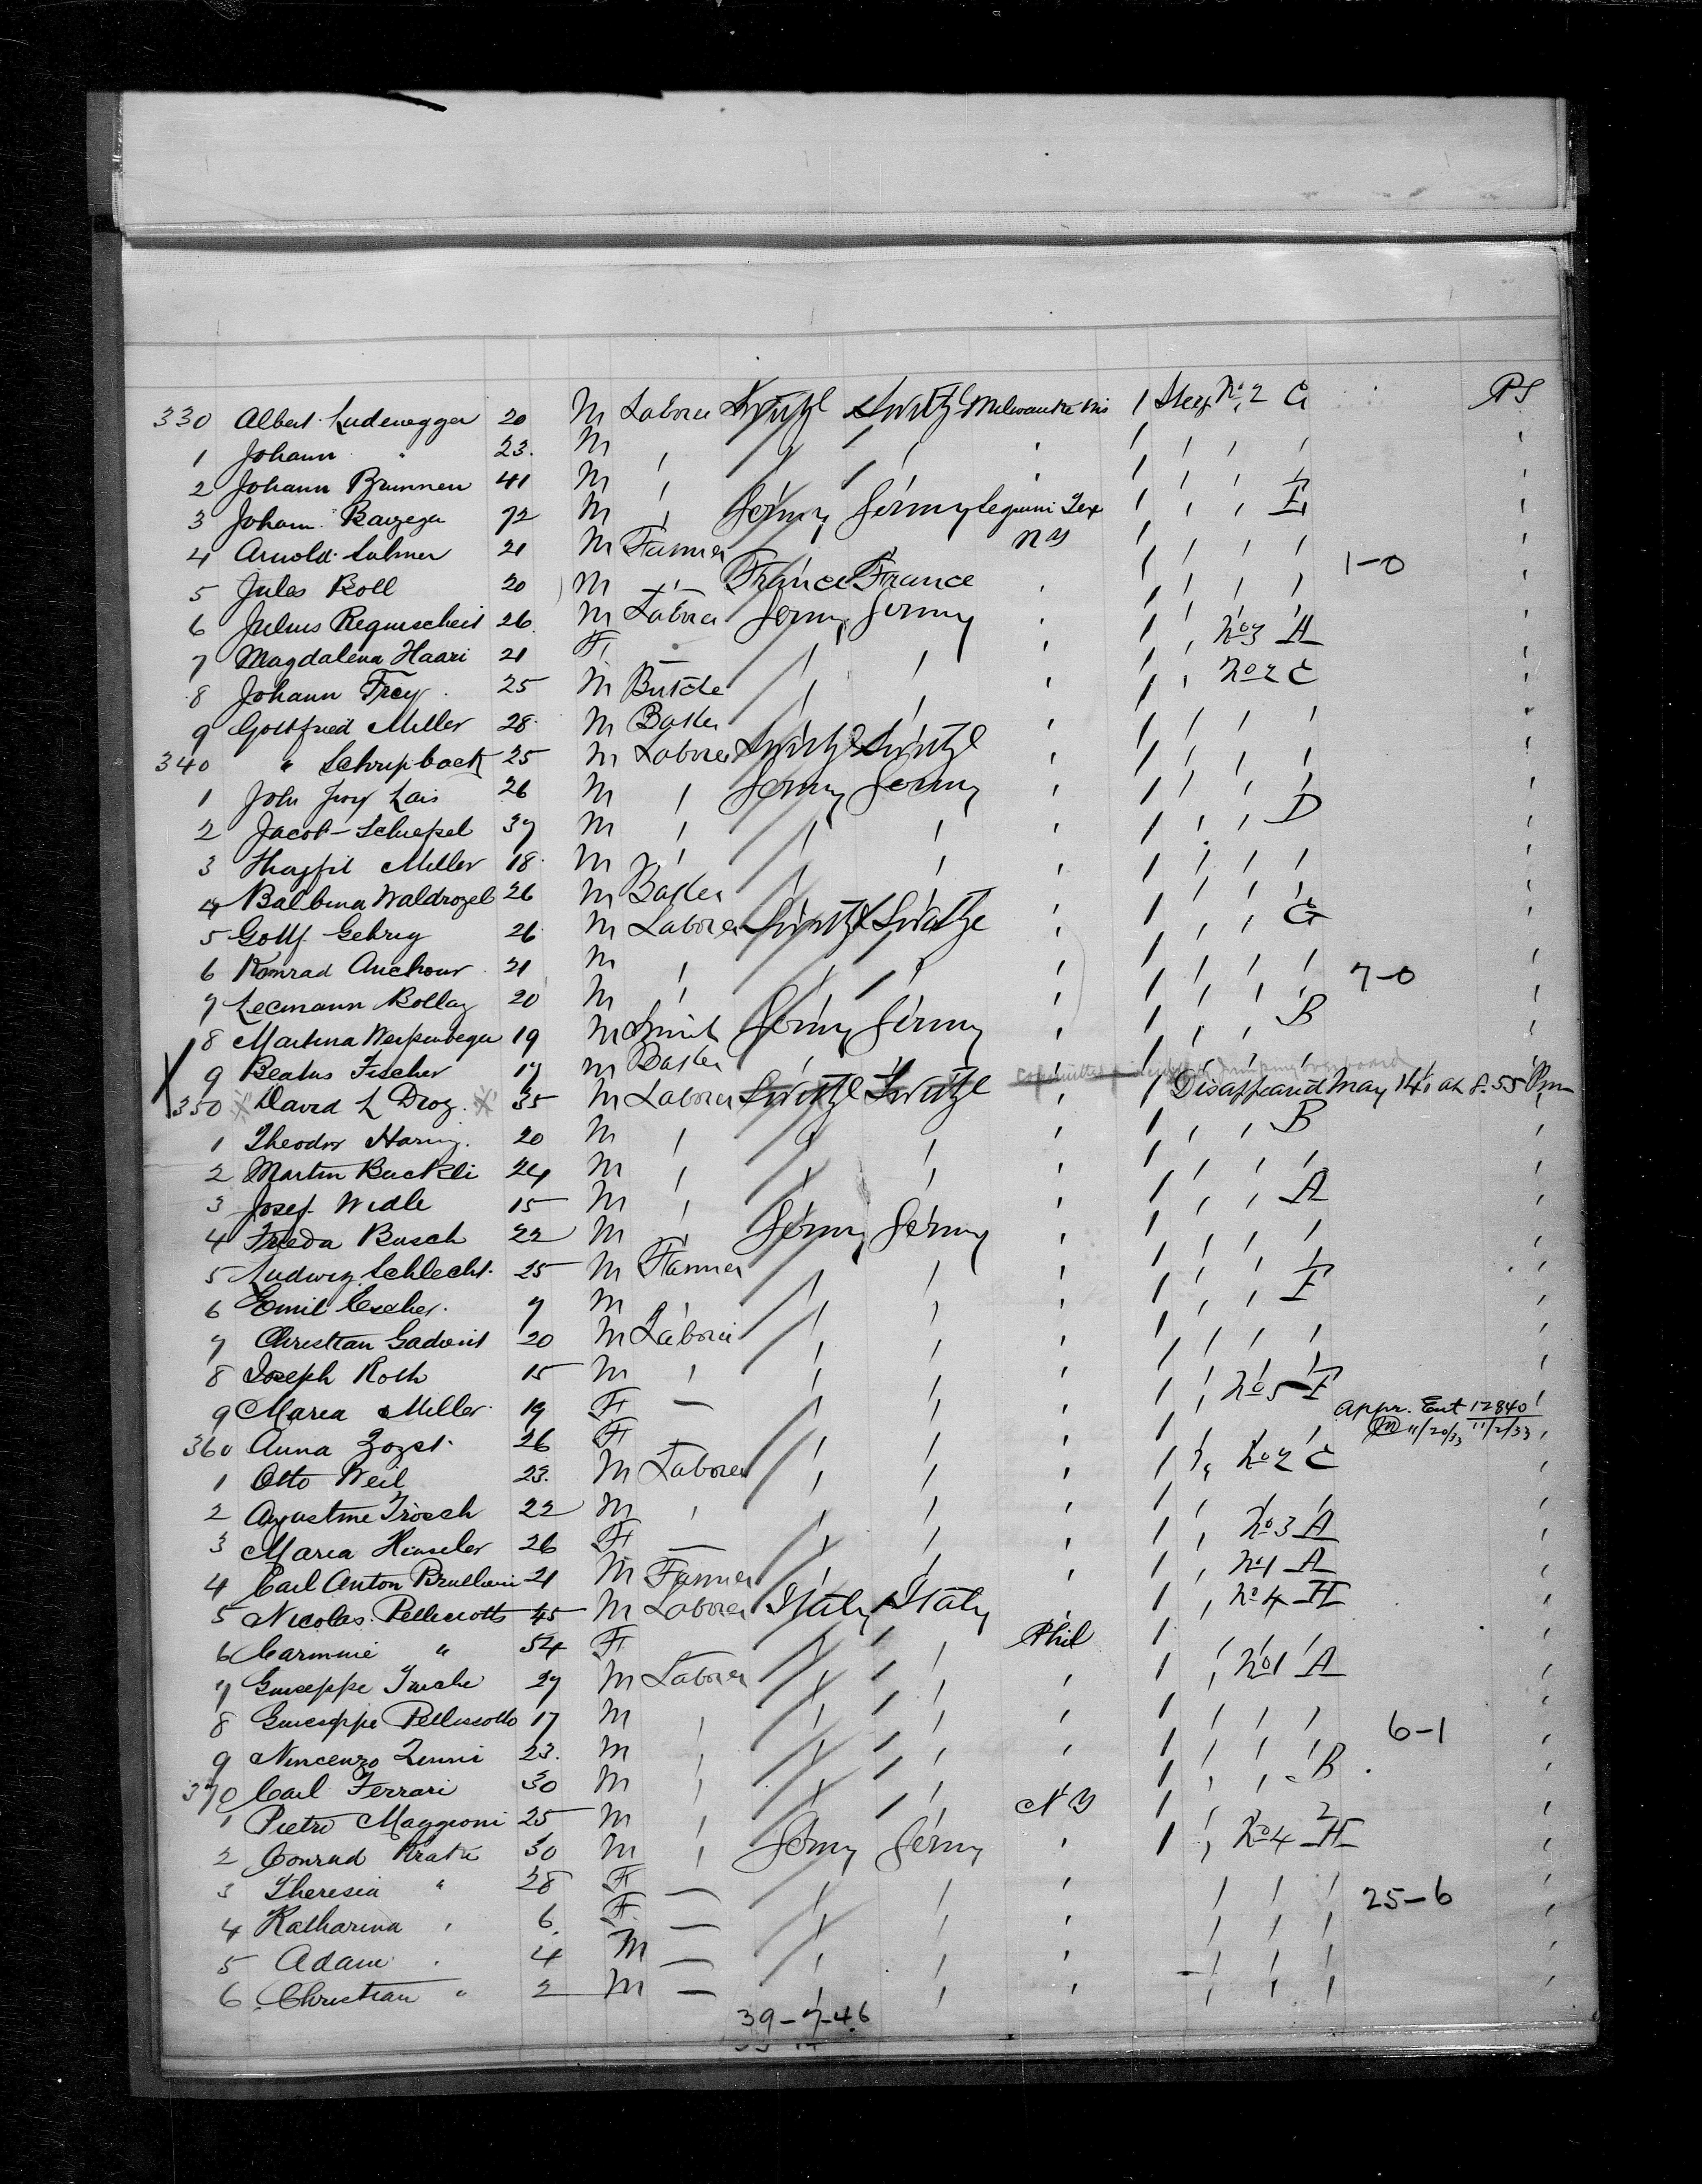 330 Albert Ludenegger 20 M Laborer Switzl Switzl Milwaukee Wis 1 Steeg No 2 C PS
1 Johann " 23 M ' ' ' ' 1 ' ' ' ' '
2 Johann Brunner 41 M ' ' ' ' 1 ' ' ' ' '
3 Johann 72 M ' Germy Germy Tex 1 ' ' ' E '
4 Arnold 21 M Farmer ' ' NY 1 ' ' ' ' '
5 Jules Boll 20 M ' France France ' 1 ' ' ' ' 1-0 '
6 Julius Reguischeit 26 M Laborer Germy Germy ' 1 ' ' ' ' '
7 Magdalena Haari 21 F — ' ' ' 1 ' No 3 A '
8 Johann Frey 25 M Butche ' ' ' 1 ' No 2 C '
9 Gottfried Miller 28 M Baker ' ' ' 1 ' ' ' ' '
340 " Schupback 25 M Laborer Switzl Switzl ' 1 ' ' ' ' '
1 John Lais 26 M ' Germy Germy ' 1 ' ' ' ' '
2 Jacob 37 M ' ' ' ' 1 ' ' D '
3 Miller 18 M ' ' ' ' 1 ' ' ' ' '
4 Balbina Waldvogel 26 M Baker ' ' ' 1 ' ' ' ' '
5 Gottf. Gehrig 26 M Laborer Switzl Switzl ' 1 ' ' C '
6 Konrad 21 M ' ' ' ' 1 ' ' ' ' '
7 Bollag 20 M ' ' ' ' 1 ' ' ' ' 7-0 '
8 Martina 19 M Smith Germy Germy ' 1 ' ' B '
9 Beatus Fischer 17 M Baker ' ' ' 1 ' ' ' ' '
350 David L Droz 35 M Laborer Switzl Switzl ' 1 Disappeared May 14th at 8.55 Pm
1 Theodor Haring 20 M ' ' ' ' 1 ' ' B '
2 Martin Buckli 24 M ' ' ' ' 1 ' ' ' ' '
3 Josef Widle 15 M ' ' ' ' 1 ' ' A '
4 Frieda Busch 22 M ' Germy Germy ' 1 ' ' ' ' '
5 Ludwig Schlecht 25 M Farmer ' ' ' 1 ' ' ' ' '
6 Emil Escher 7 M ' ' ' ' 1 ' ' E '
7 Christian 20 M Laborer ' ' ' 1 ' ' ' ' '
8 Joseph Roth 15 M ' ' ' ' 1 ' ' ' ' '
9 Maria Miller 19 F — ' ' ' 1 ' No 5 E '
Appr. Ent 12840
11/20/33 11/2/33
360 Anna 26 F — ' ' ' 1 ' ' ' '
1 Otto Weil 23 M Laborer ' ' ' 1 ' No 2 C '
2 Agustine Trösch 22 M ' ' ' ' 1 ' ' ' ' '
3 Maria 26 F — ' ' ' 1 ' No 3 A '
4 Carl Anton 21 M Farmer ' ' ' 1 ' No 1 A '
5 Nicolas 45 M Laborer Italy Italy ' 1 ' No 4 H '
6 Carmine " 54 F — ' ' Phil 1 ' ' ' '
7 Guseppe 27 M Laborer ' ' ' 1 ' No 1 A '
8 Guiseppe 17 M ' ' ' ' 1 ' ' ' '
9 Nincenzo 23 M ' ' ' ' 1 ' ' ' ' 6-1 '
370 Carl Ferrari 30 M ' ' ' ' 1 ' ' B '
1 Pietro Maggioni 25 M ' ' ' NY 1 ' ' '
2 Conrad 30 M ' Germy Germy ' 1 ' No 4 H '
3 Theresia " 28 F — ' ' ' ' ' ' 25-6 '
4 Katharina " 6 F — ' ' ' ' ' ' '
5 Adam " 4 M — ' ' ' ' ' ' '
6 Christian " 2 M — ' ' ' ' ' ' '
39-7-46